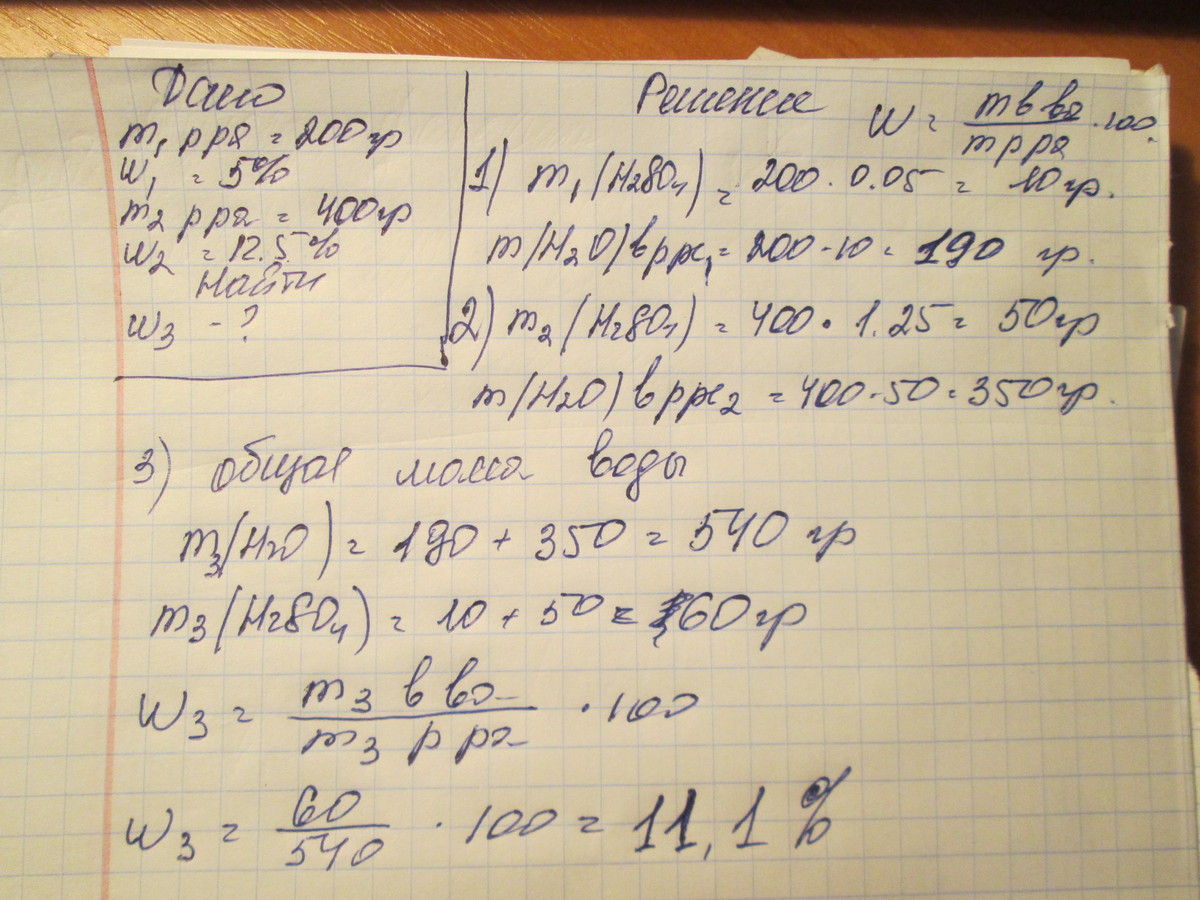 Дано
m₁ рра = 200гр
W₁ = 5%
m₂ рра = 400гр
W₂ = 12.5%
Найти
W₃ - ?
Решение
W = m в ва / m рра · 100.
1) m₁(H₂SO₄) = 200 · 0.05 = 10 гр.
m(H₂O) в рре₁ = 200 - 10 = 190 гр.
2) m₂(H₂SO₄) = 400 · 1.25 = 50гр
m(H₂O) в рре₂ = 400 - 50 = 350гр.
3) общая масса воды
m₃(H₂O) = 190 + 350 = 540 гр
m₃(H₂SO₄) = 10 + 50 = 60гр
W₃ = m₃ в ва / m₃ р ра · 100
W₃ = 60 / 540 · 100 = 11,1%